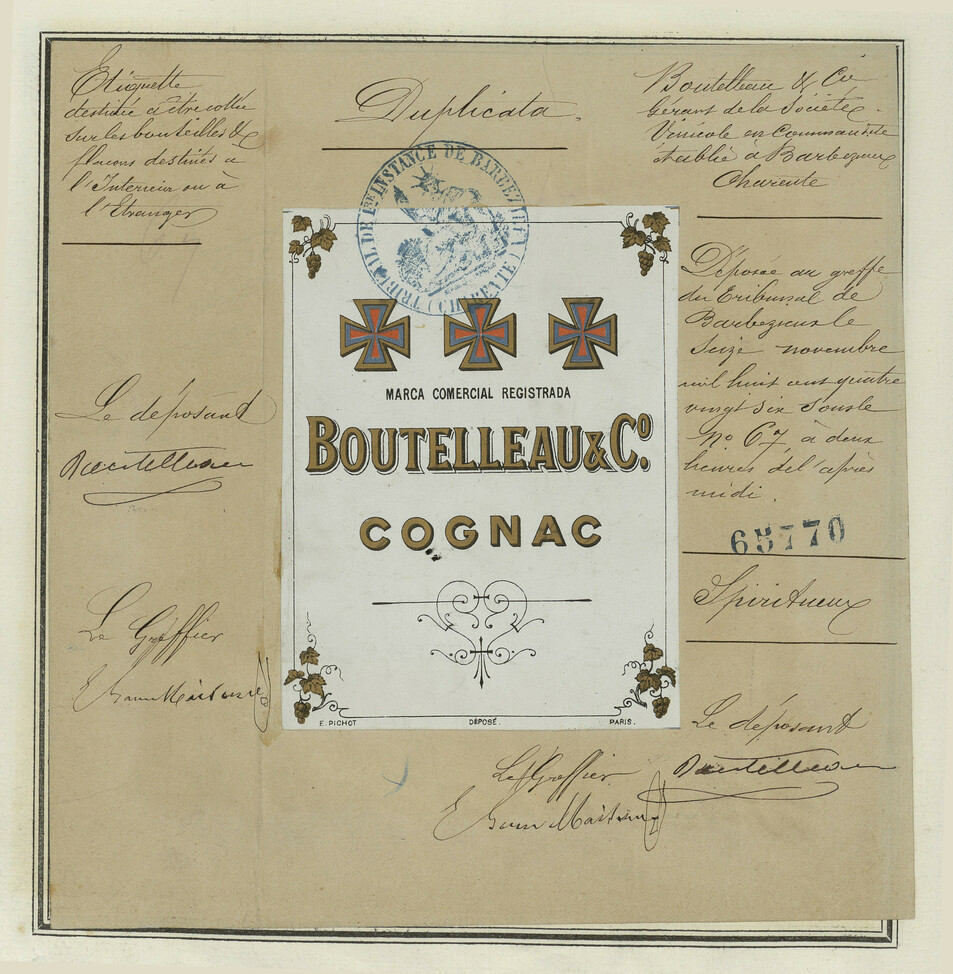 Etiquette
destinée à être collée
sur les bouteilles &
flacons destinés à
l'Interieur ou à
l'Etranger
Le déposant
Boutelleau
Le Greffier
Duplicata.
TRIBUNAL DE 1ERE INSTANCE DE BARBEZIEUX (CHARENTE)
MARCA COMERCIAL REGISTRADA
BOUTELLEAU & Cº.
COGNAC
E. PICHOT DÉPOSÉ. PARIS.
Boutelleau & Cie
Gérant de la Société
Vinicole en Commandite
établie à Barbezieux
Charente
Déposée au greffe
du Tribunal de
Barbezieux le
seize novembre
mil huit cent quatre
vingt six sous le
No 67 à deux
heures de l'après
midi.
65770
Spiritueux
Le déposant
Boutelleau
Le Greffier